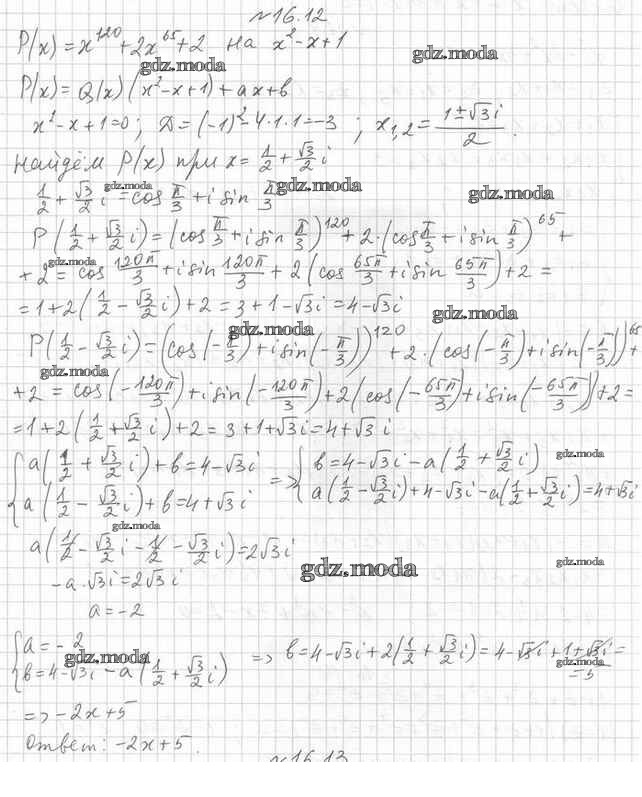 №16.12
P(x) = x^120 + 2x^65 + 2 на x² - x + 1
gdz.moda
gdz.moda
P(x) = Q(x)(x² - x + 1) + ax + b
x² - x + 1 = 0; D = (-1)² - 4·1·1 = -3; x₁,₂ = (1 ± √3 i)/2.
найдём P(x) при x = 1/2 + √3/2 i
gdz.moda gdz.moda gdz.moda
1/2 + √3/2 i = cos π/3 + i sin π/3
P(1/2 + √3/2 i) = (cos π/3 + i sin π/3)^120 + 2·(cos π/3 + i sin π/3)^65 +
gdz.moda
+ 2 = cos 120π/3 + i sin 120π/3 + 2(cos 65π/3 + i sin 65π/3) + 2 =
= 1 + 2(1/2 - √3/2 i) + 2 = 3 + 1 - √3 i = 4 - √3 i
gdz.moda gdz.moda
P(1/2 - √3/2 i) = (cos(-π/3) + i sin(-π/3))^120 + 2·(cos(-π/3) + i sin(-π/3))^65 +
gdz.moda
+ 2 = cos(-120π/3) + i sin(-120π/3) + 2(cos(-65π/3) + i sin(-65π/3)) + 2 =
= 1 + 2(1/2 + √3/2 i) + 2 = 3 + 1 + √3 i = 4 + √3 i
gdz.moda
{ a(1/2 + √3/2 i) + b = 4 - √3 i => { b = 4 - √3 i - a(1/2 + √3/2 i)
a(1/2 - √3/2 i) + b = 4 + √3 i a(1/2 - √3/2 i) + 4 - √3 i - a(1/2 + √3/2 i) = 4 + √3 i
gdz.moda
a(1/2 - √3/2 i - 1/2 - √3/2 i) = 2√3 i
gdz.moda gdz.moda
-a·√3 i = 2√3 i
a = -2
{ a = -2
gdz.moda
b = 4 - √3 i - a(1/2 + √3/2 i) => b = 4 - √3 i + 2(1/2 + √3/2 i) = 4 - √3 i + 1 + √3 i =
gdz.moda
= 5
=> -2x + 5
Ответ: -2x + 5.
№16.13